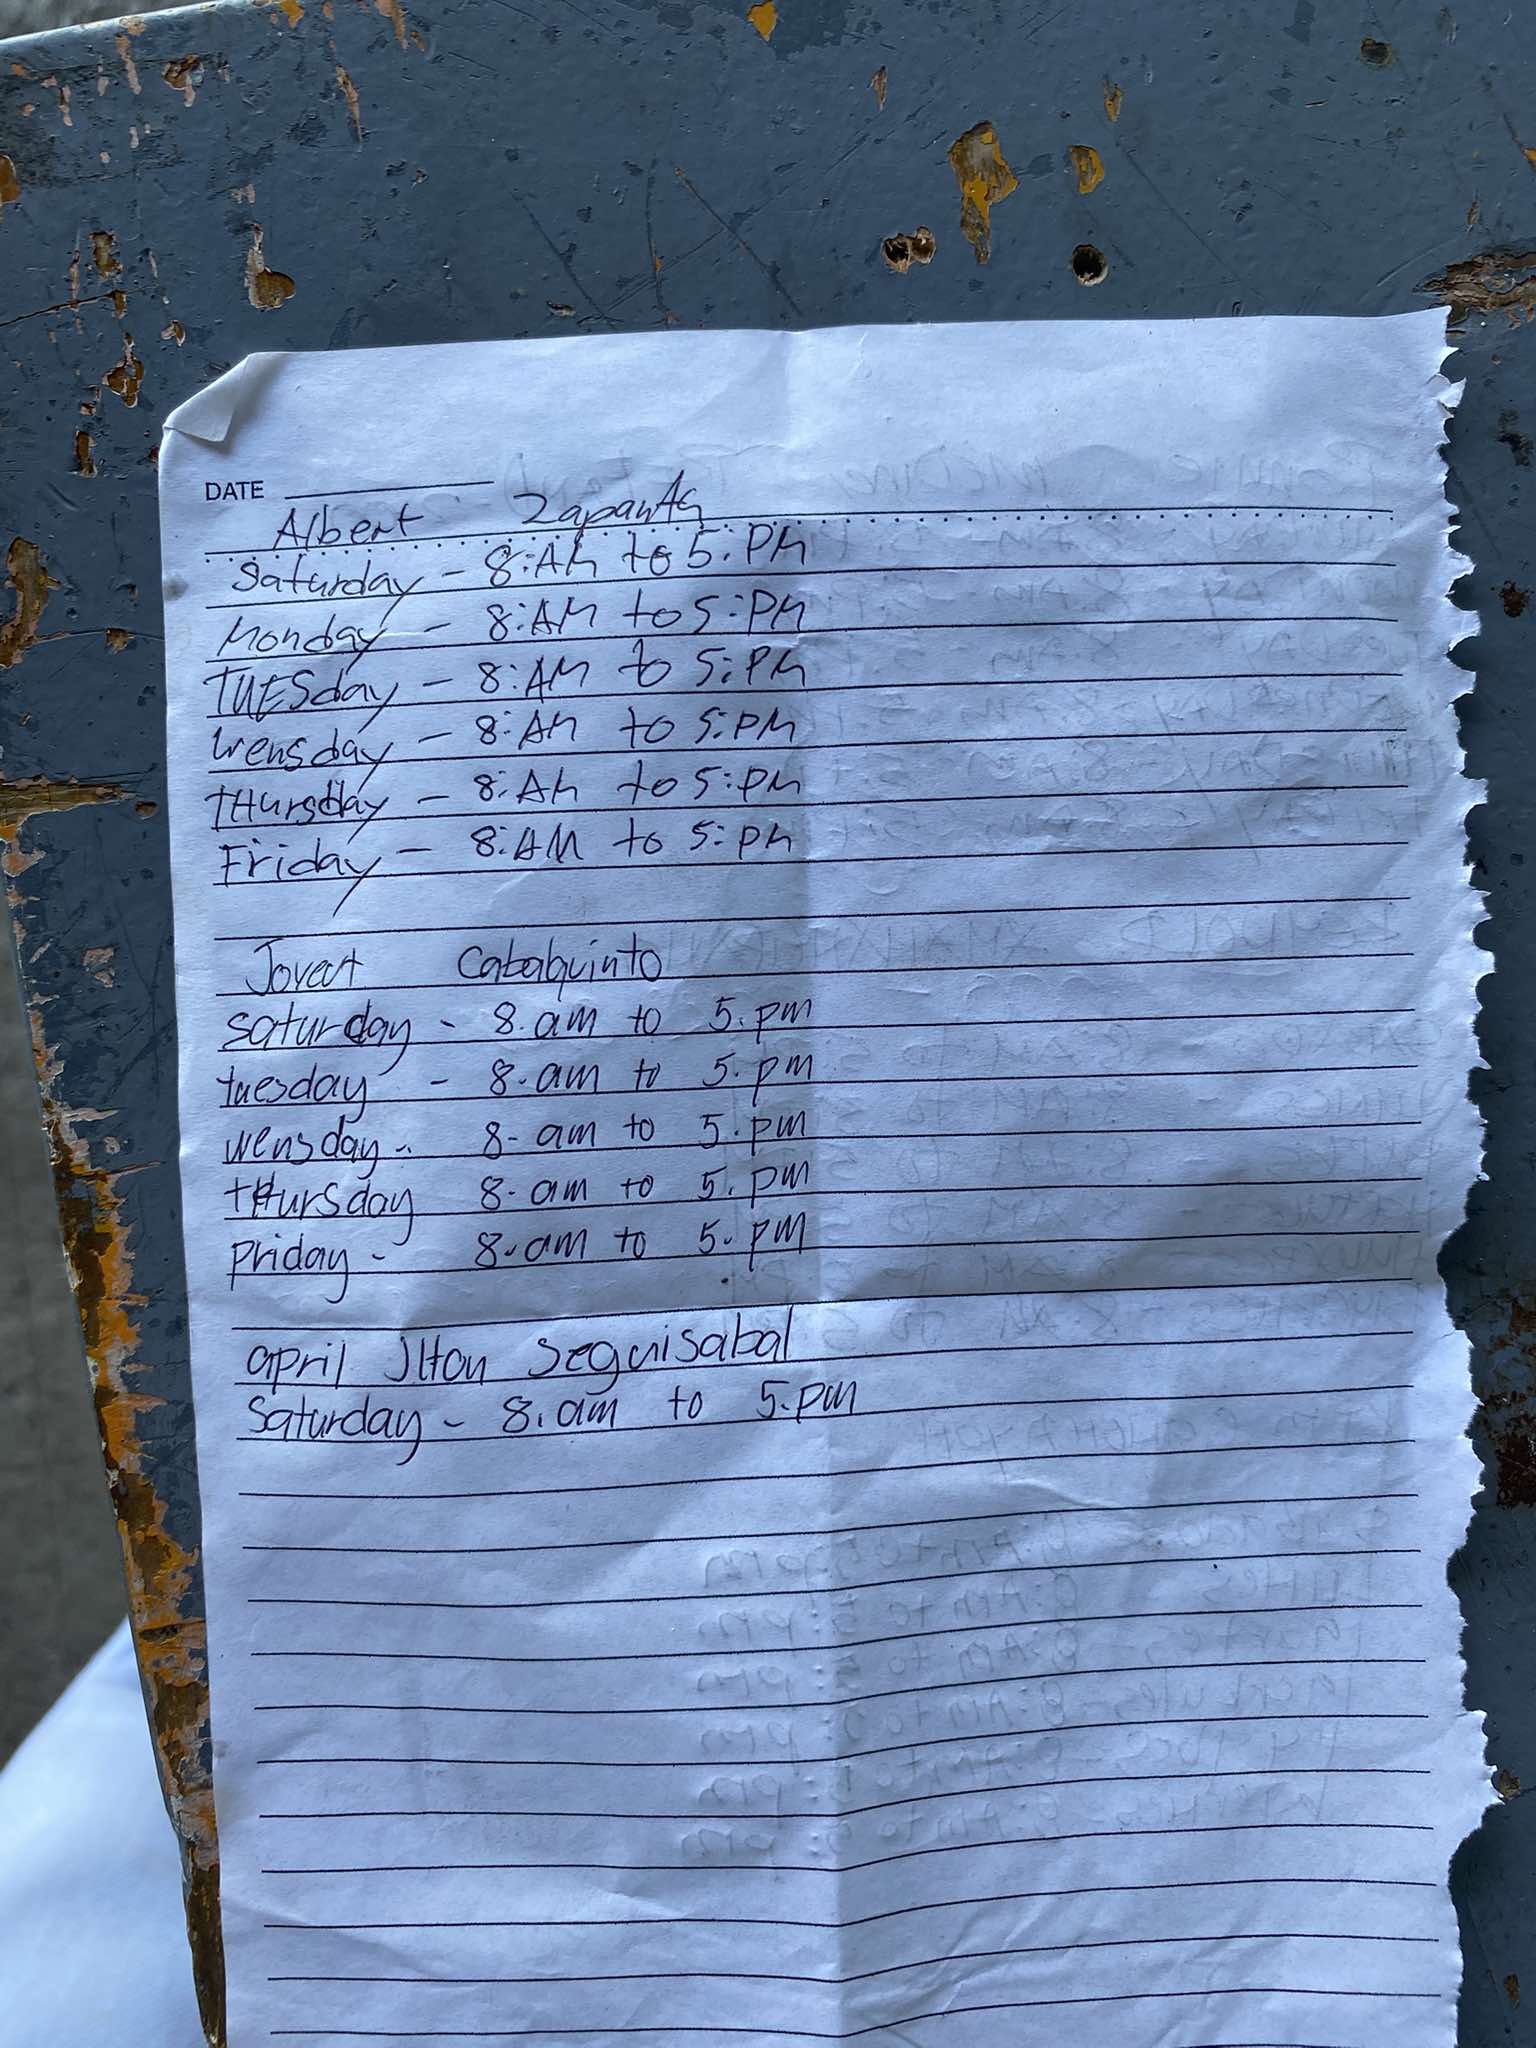 DATE
Albert Zapanta
Saturday - 8:AM to 5:PM
Monday - 8:AM to 5:PM
TUESday - 8:AM to 5:PM
Wensday - 8:AM to 5:PM
THursday - 8:AM to 5:PM
Friday - 8:AM to 5:PM
Jovert Cabaquinto
Saturday - 8.am to 5.pm
tuesday - 8.am to 5.pm
wensday - 8.am to 5.pm
tHursday 8.am to 5.pm
priday - 8.am to 5.pm
april Seguisabal
Saturday - 8.am to 5.pm